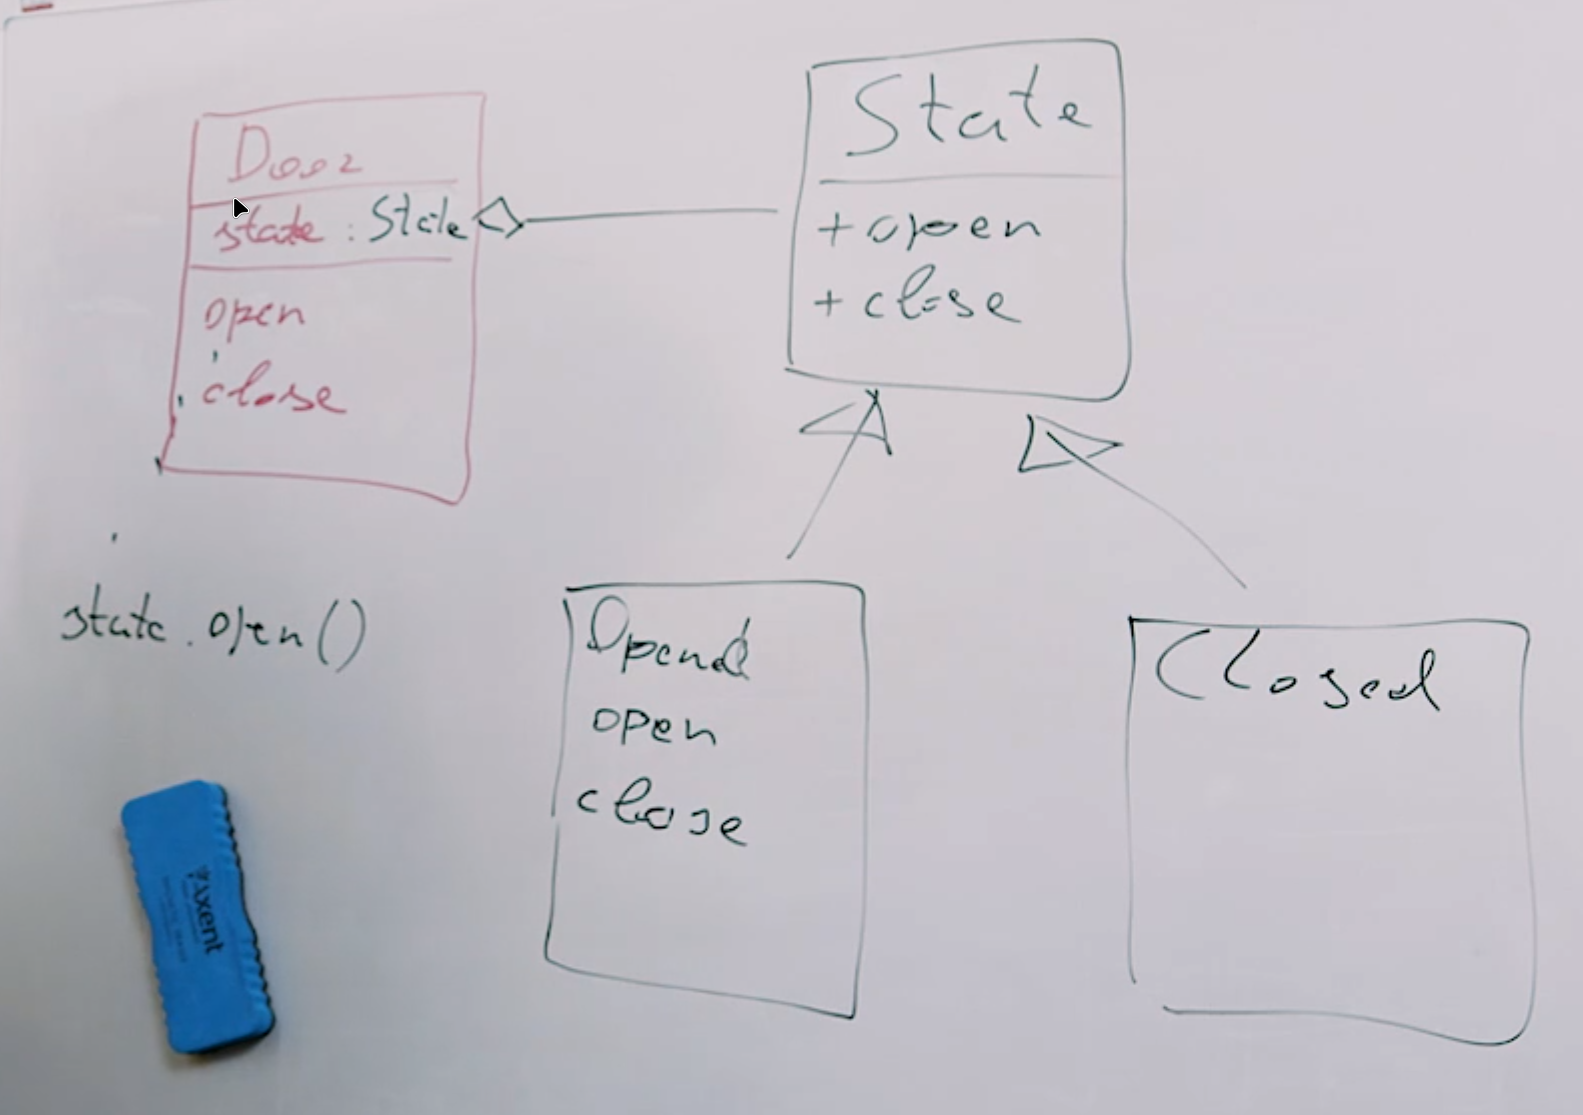 Door
state : State
open
close
State
+ open
+ close
state.open()
Opend
open
close
Closed
Axent